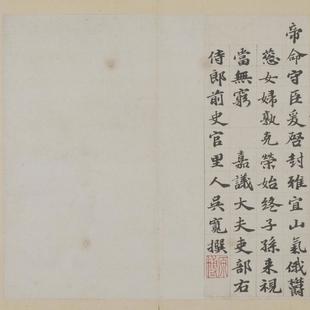 帝命守臣爰啓封雅宜山氣俄欝
慈女婦孰克榮始終子孫來視
當無窮　嘉議大夫吏部右
侍郎前史官里人吳寬撰